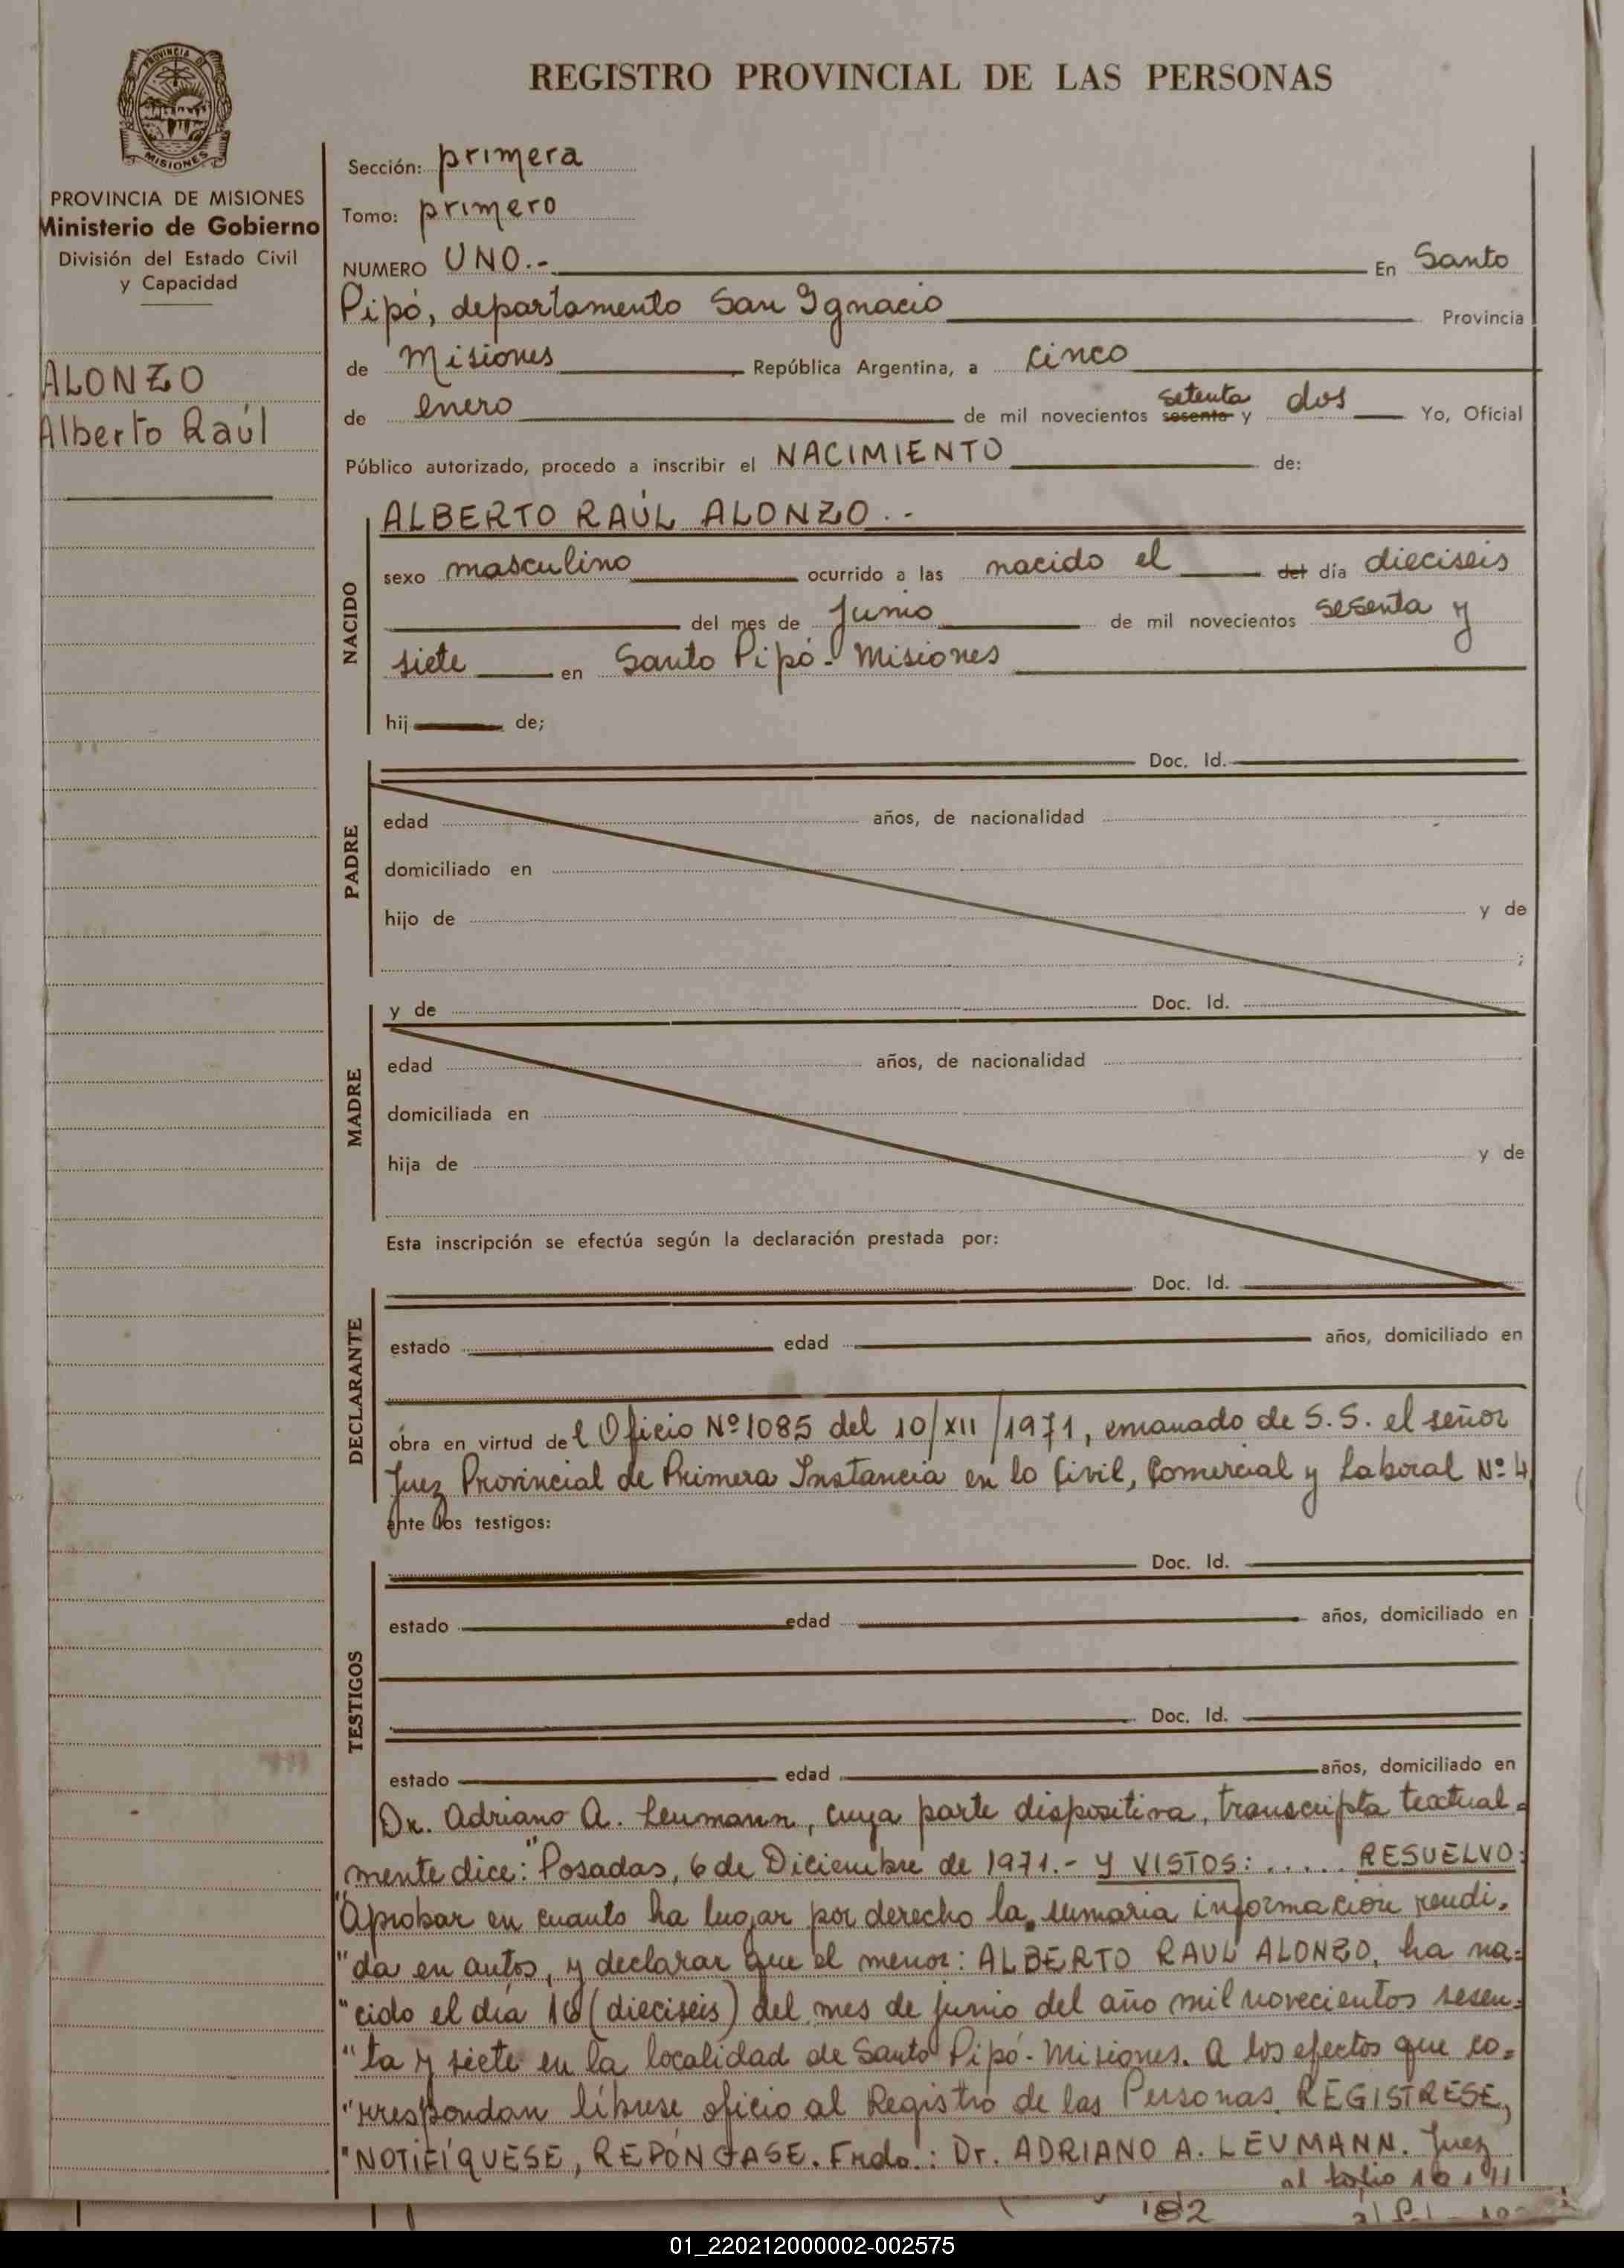 PROVINCIA DE
MISIONES
PROVINCIA DE MISIONES
Ministerio de Gobierno
División del Estado Civil
y Capacidad
ALONZO
Alberto Raúl
REGISTRO PROVINCIAL DE LAS PERSONAS
Sección: primera
Tomo: primero
NUMERO UNO.- En Santo
Pipó, departamento San Ignacio Provincia
de Misiones República Argentina, a cinco
de enero de mil novecientos sesenta setenta y dos Yo, Oficial
Público autorizado, procedo a inscribir el NACIMIENTO de:
NACIDO
ALBERTO RAÚL ALONZO.-
sexo masculino ocurrido a las nacido el del día dieciseis
del mes de Junio de mil novecientos sesenta y
siete en Santo Pipó - Misiones
hij de;
PADRE
Doc. Id.
edad años, de nacionalidad
domiciliado en
hijo de y de
;
MADRE
y de Doc. Id.
edad años, de nacionalidad
domiciliada en
hija de y de
Esta inscripción se efectúa según la declaración prestada por:
DECLARANTE
Doc. Id.
estado edad años, domiciliado en
obra en virtud del Oficio Nº 1085 del 10/XII/1971, emanado de S.S. el señor
Juez Provincial de Primera Instancia en lo Civil, Comercial y Laboral Nº 4
ante los testigos:
TESTIGOS
Doc. Id.
estado edad años, domiciliado en
Doc. Id.
estado edad años, domiciliado en
Dr. Adriano A. Leumann, cuya parte dispositiva, transcripta textual=
mente dice: "Posadas, 6 de Diciembre de 1971.- Y VISTOS: ..... RESUELVO:
"Aprobar en cuanto ha lugar por derecho la sumaria información rendi=
"da en autos, y declarar que el menor: ALBERTO RAUL ALONZO, ha na=
"cido el día 16 (dieciseis) del mes de junio del año mil novecientos sesen=
"ta y siete en la localidad de Santo Pipó - Misiones. A los efectos que co=
"rrespondan líbrese oficio al Registro de las Personas. REGISTRESE,
"NOTIFÍQUESE, REPÓNGASE. Fndo.: Dr. ADRIANO A. LEUMANN. Juez
al folio
182
01_220212000002-002575